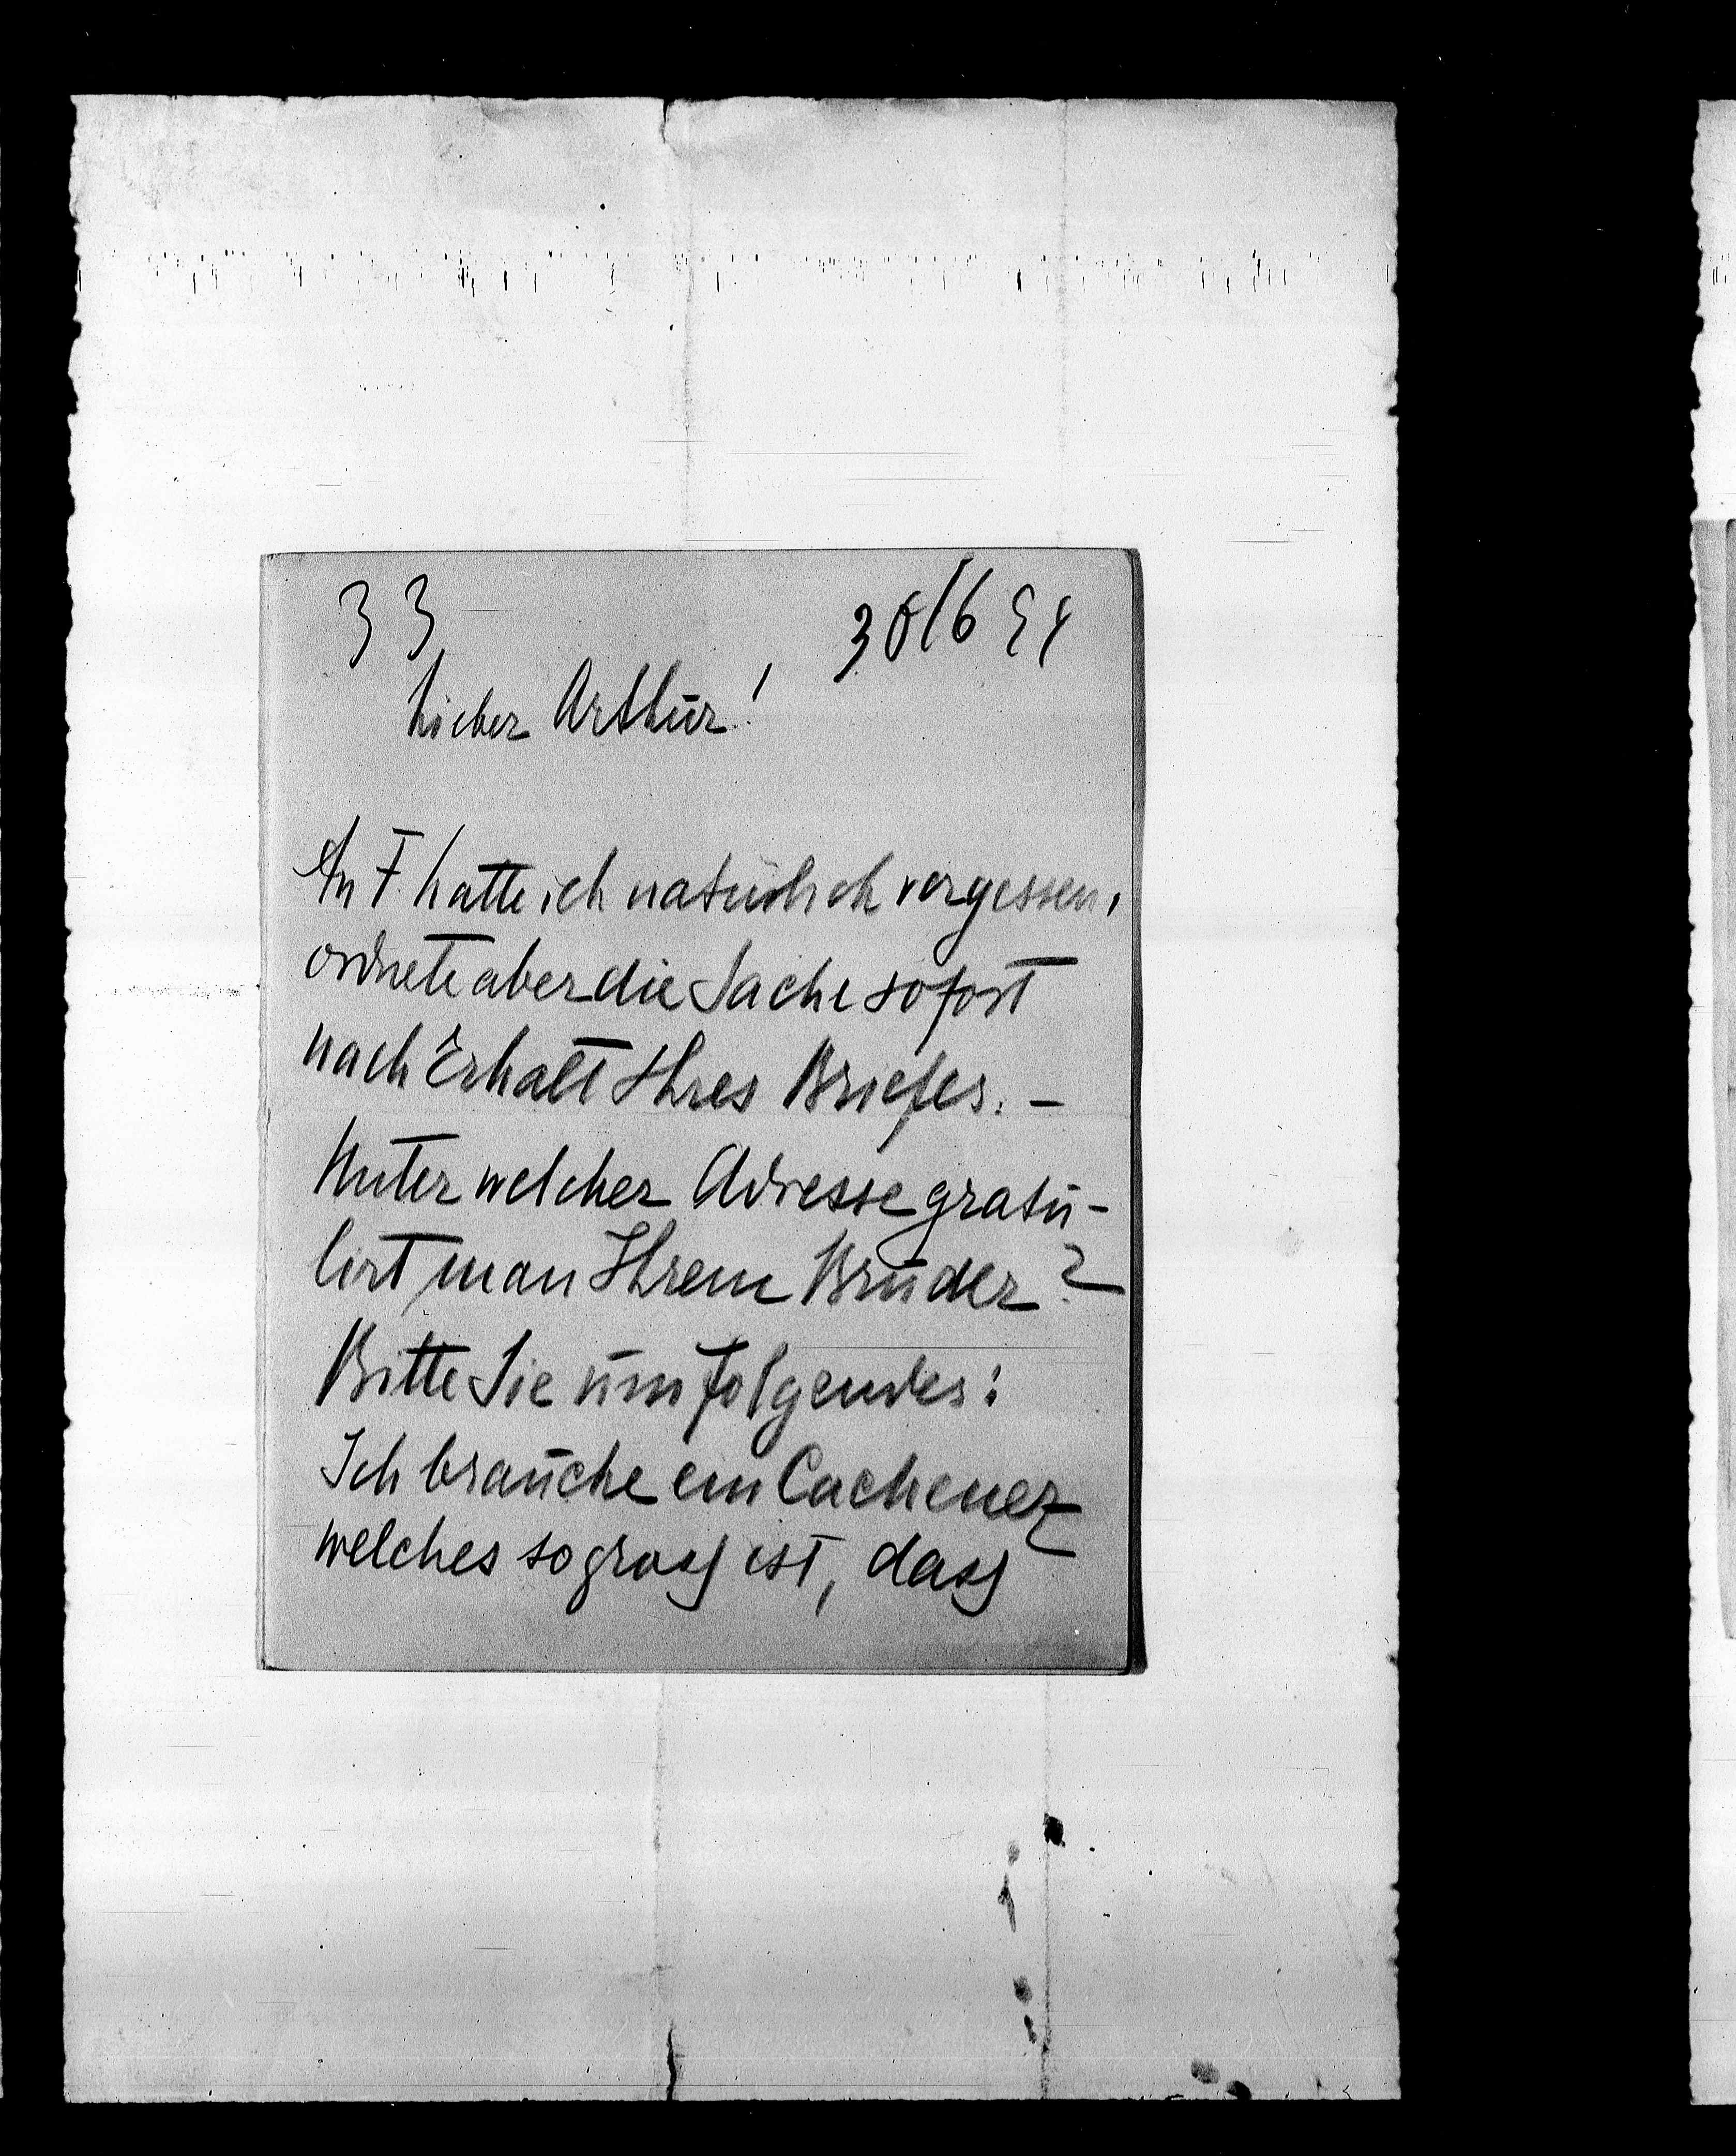 33
30/6 94
Lieber Arthur!
An F. hatte ich natürlich vergessen,
ordnete aber die Sache sofort
nach Erhalt Ihres Briefes. –
Unter welcher Adresse gratu-
lirt man Ihrem Bruder?
Bitte Sie um folgendes:
Ich brauche ein Cachenez
welches so gross ist, dass